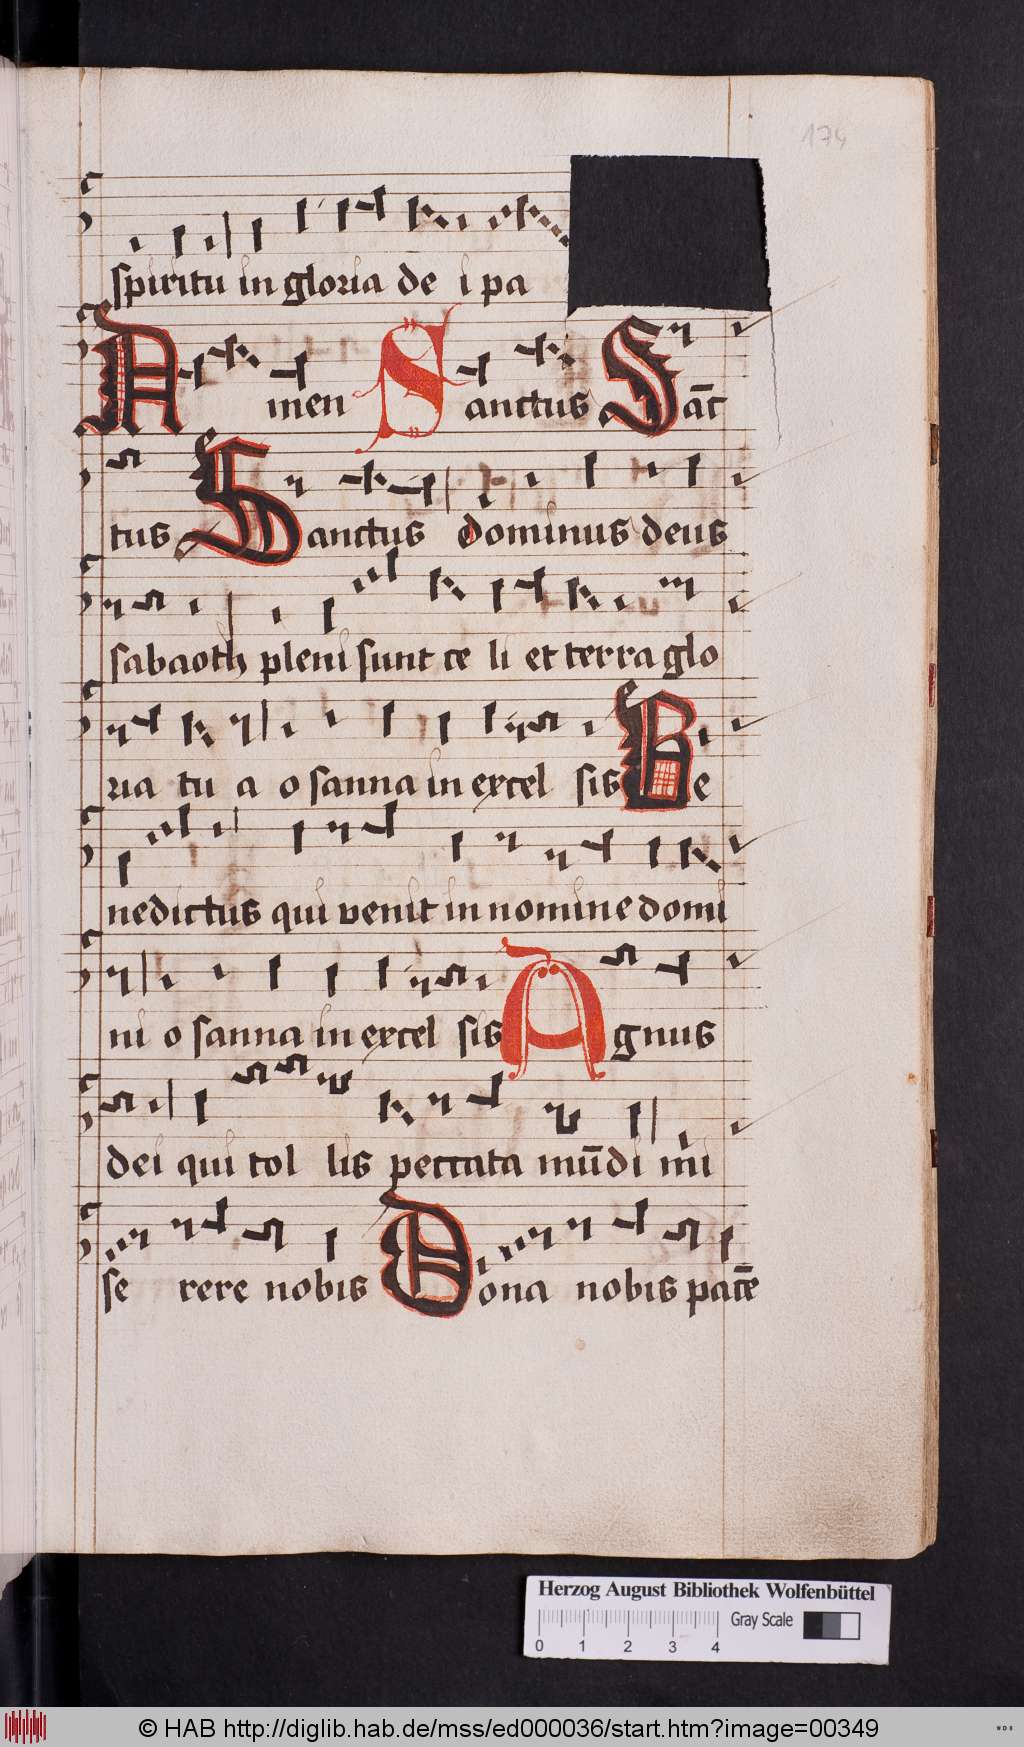 174
spiritu in gloria de i pa
Amen Sanctus Sāc
tus Sanctus dominus deus
sabaoth pleni sunt ce li et terra glo
ria tu a o sanna in excel sis Be
nedictus qui venit in nomine domi
ni o sanna in excel sis Agnus
dei qui tol lis peccata mūdi mi
se rere nobis Dona nobis pacē
Herzog August Bibliothek Wolfenbüttel
Gray Scale
0 1 2 3 4
© HAB http://diglib.hab.de/mss/ed000036/start.htm?image=00349
WDB